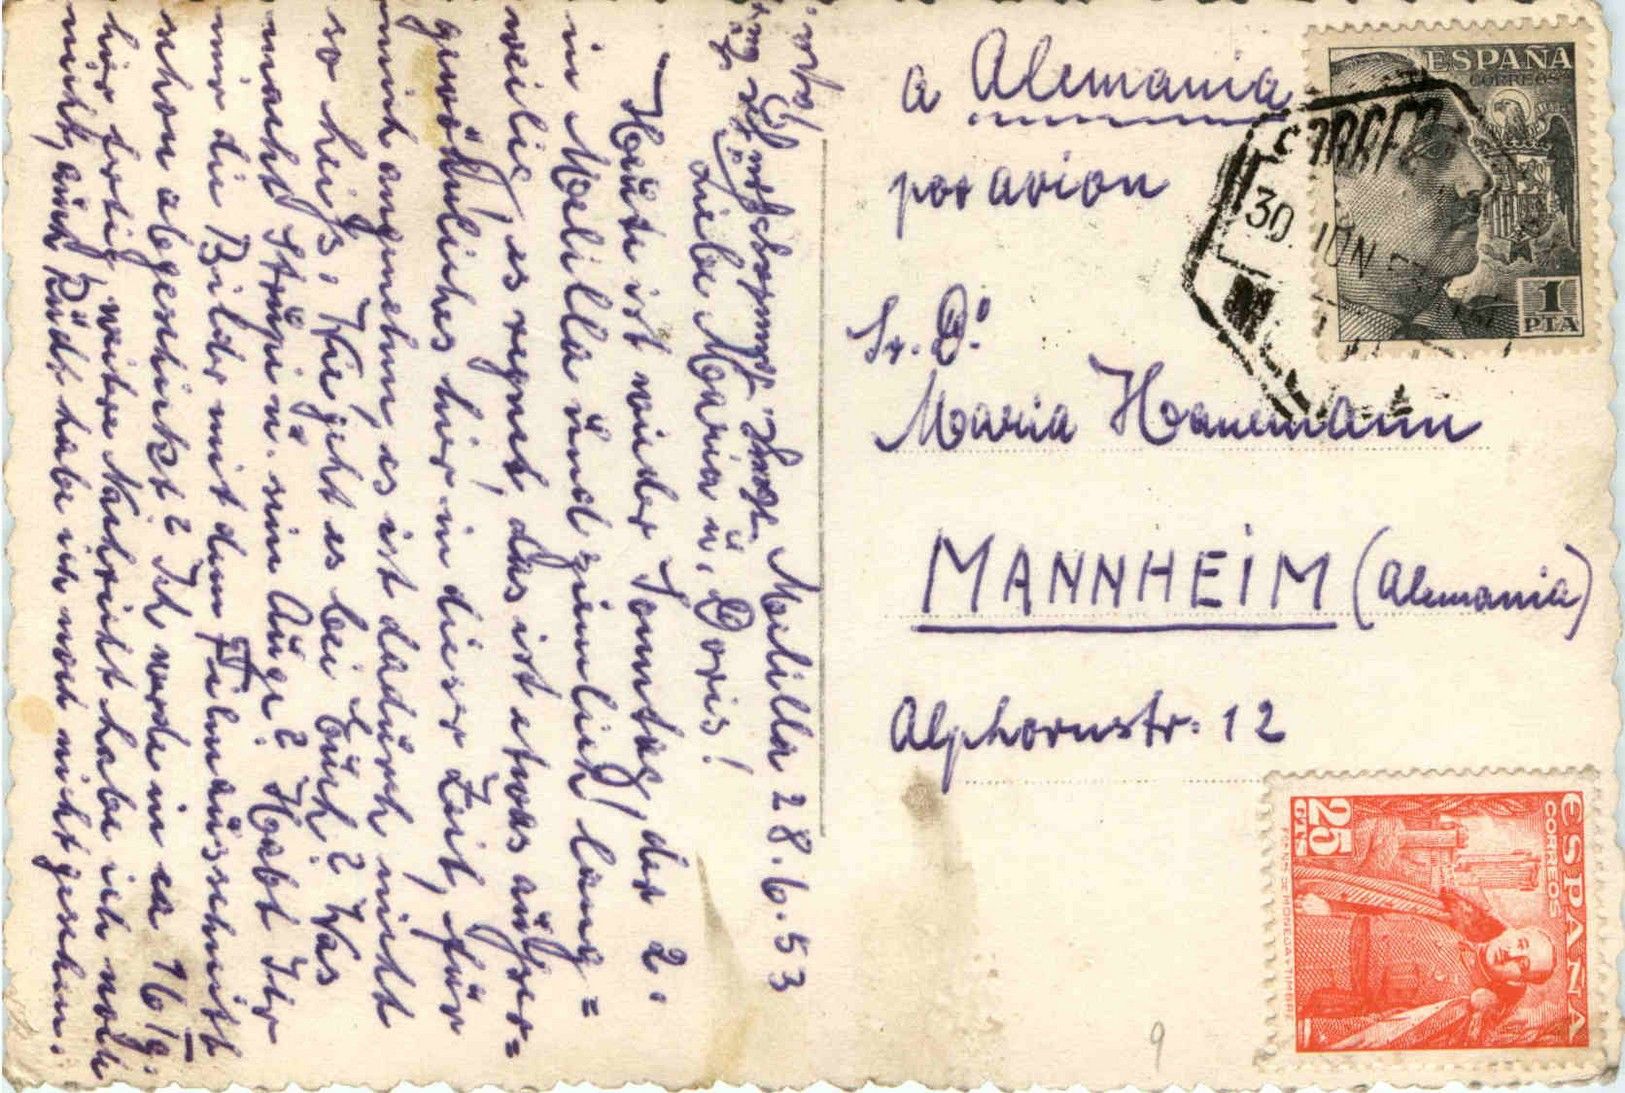 Melilla 28.6.53
Liebe Maria u. Doris!
Heute ist wieder Sonntag, der 2.
in Melilla und ziemlich lang=
weilig, es regnet, das ist etwas außer=
gewöhnliches hier in dieser Zeit, für
mich angenehm, es ist dadurch nicht
so heiß. Wie geht es bei Euch? Was
macht Stupsi u. sein Auge? Habt Ihr
mir die Bilder mit dem Filmausschnitt
schon abgeschickt? Ich werde in ca 16 Tg.
hier fertig, weitere Nachricht habe ich noch
nicht, auch Post habe ich noch nicht gesehen.
a Alemania
por avion
Sr. D.
Maria Hanemann
MANNHEIM (Alemania)
Alphornstr. 12
ESPAÑA
CORREOS
1
PTA
CORREO
30 JUN
ESPAÑA
CORREOS
25
CTS
9